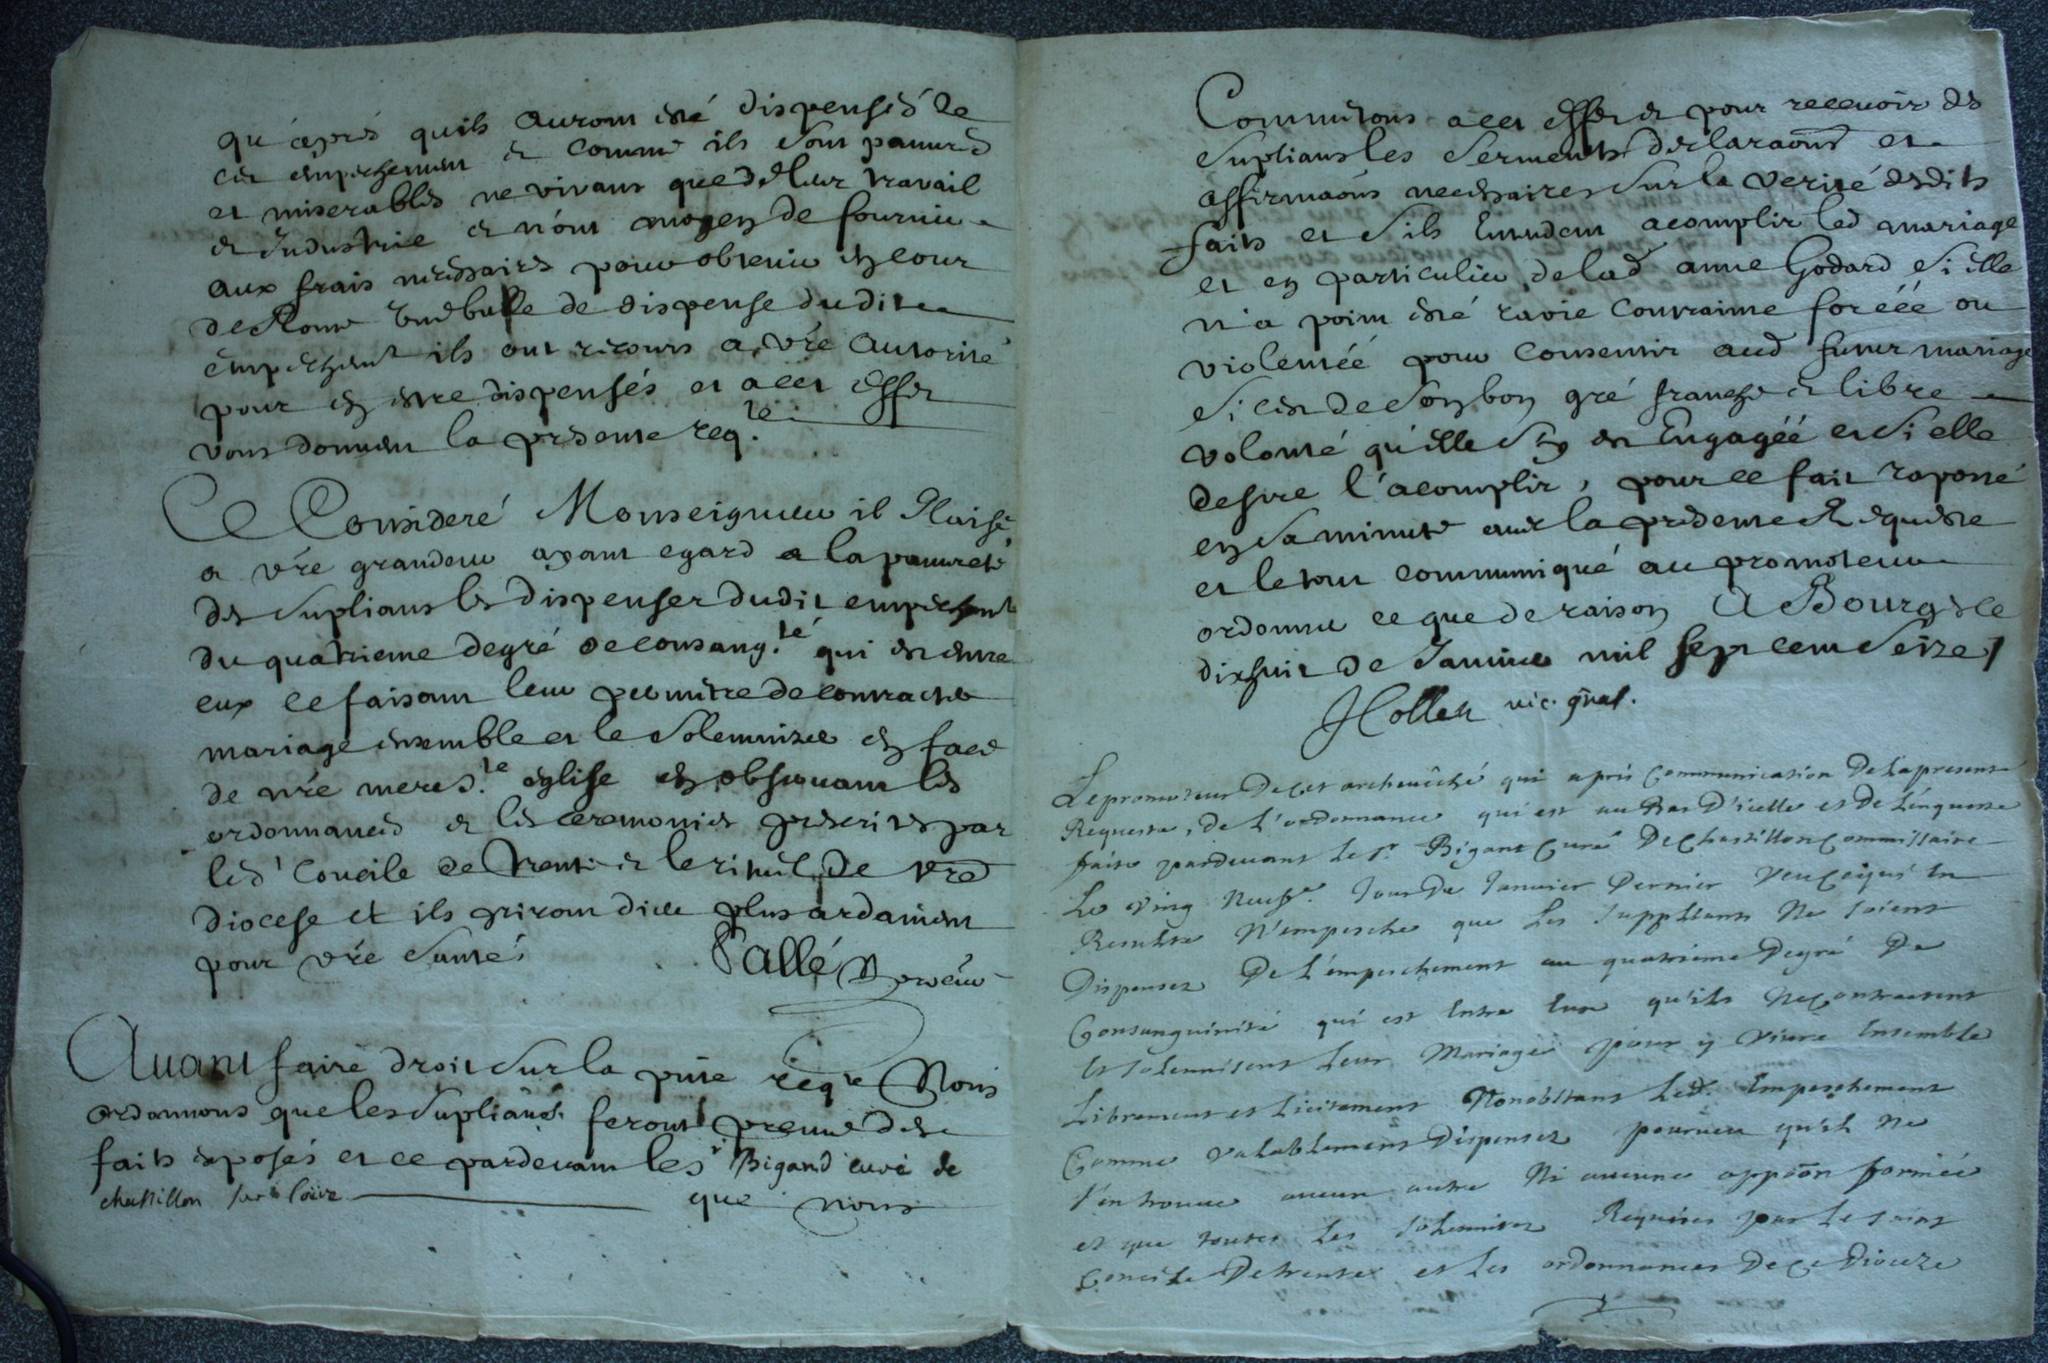 qu'aprés quils auront esté dispensés de
cet empeschement et comme ils sont pauures
et miserables ne vivans que de leur travail
et Industrie et n'ont moyen de fournir
aux frais necessaires pour obtenir en cour
de Rome une bulle de dispense dudit
empeschemt ils ont recours a vre autorité
pour en estre dispensés et a cet effet
vous donnent la presente reqte
Ce Consideré Monseigneur il Plaise
a vre grandeur ayant egard a la pauureté
des suplians les dispenser dudit empeschemt
du quatrieme degré de consangté qui est entre
eux ce faisant leur permettre de contracter
mariage ensemble et le solemnizer en face
de nre mere ste église en obseruant les
ordonnances et les ceremonies prescrites par
led Concile de Trente et le rituel de vre
diocese et ils priront dieu plus ardament
pour vre santé
Pallé
Auant faire droit sur la pnte reqte Nous
ordonnons que les suplians feront preuue des
faits exposés et ce pardeuant le sr Bigand curé de
chastillon sur loire que nous
Commettons a cet effet et pour receuoir des
suplians les serments declaraons et
affirmaons necessaires sur la verité desdits
faits et s'ils Entendent acomplir led mariage
et en particulier de lad anne Godard si elle
n'a point esté ravie contrainte forcéé ou
violentéé pour consentir aud futur mariage
si c'est de son bon gré franche et libre
volonté qu'elle s'y est Engagéé et si elle
desire l'acomplir, pour ce fait raporté
en sa minute auec la presente Requeste
et le tout communiqué au promoteur
ordonner ce que de raison A Bourges ce
dixhuit de Januier mil sept cent seize
Hollen vic. gnal.
Le promoteur De cet archeuêché qui apris communication De la presente
Requeste, de L'ordonnance qui est au Bas D'icelle et de L'enqueste
faite pardeuant le sr Bigant Curé De Chastillon Commissaire
Le Ving Neufe Jour De Januier Dernier Veu Ce qui En
Resulte N'empesche que Les supplians Ne soient
Dispensez De L'empeschement au quatrième Degré De
Consanguinité qui est Entre Eux qu'ils Ne Contractent
Et solennisent Leur Mariage pour y Viure Ensemble
Librement et Licitement Nonobstant Led. Empeschement
Comme Valablement Dispensez pourueu qu'il Ne
s'en trouue aucun autre Ni aucune oppoõn formée
et que toutes Les solennitez Requises par Le saint
Concile De trente et Les ordonnances De Ce Dioceze